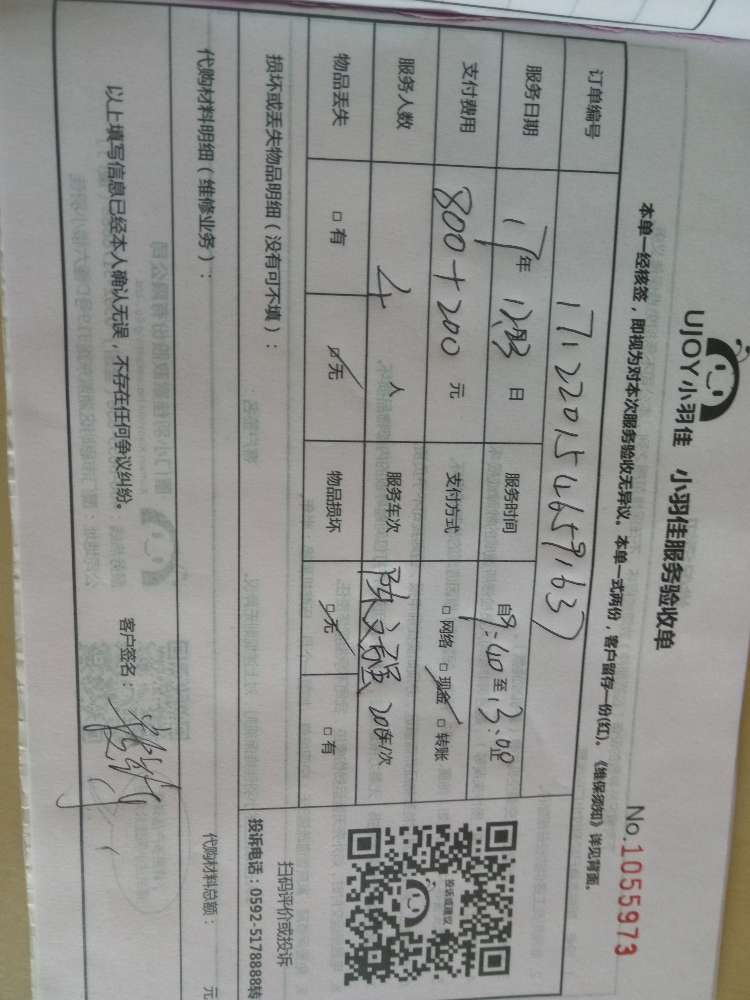 UJOY小羽佳 小羽佳服务验收单
No.1055973
本单一经核签，即视为对本次服务验收无异议。本单一式两份，客户留存一份(红)。《维保须知》详见背面。
订单编号 1712201546591637
服务日期 17年 日 服务时间 自9:40至13:00
支付费用 800+200 元 支付方式 □网络 □现金 □转账
服务人数 4 人 服务车次 陈文强 20车/次
物品丢失 □有 □无 物品损坏 □无 □有
损坏或丢失物品明细（没有可不填）：
代购材料明细（维修业务）：
代购材料总额： 元
以上填写信息已经本人确认无误，不存在任何争议纠纷。
客户签名：
投诉或建议
UJOY
扫码评价或投诉
投诉电话：0592-5178888转